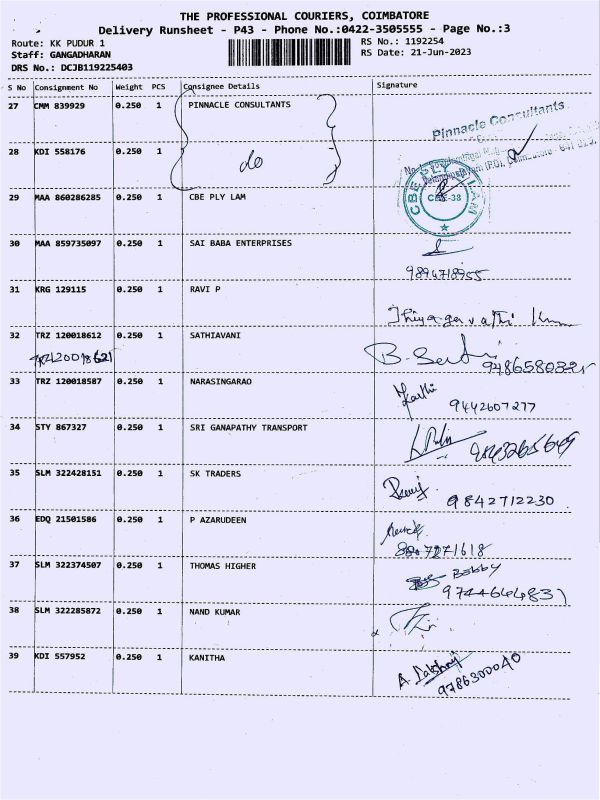 THE PROFESSIONAL COURIERS, COIMBATORE
Delivery Runsheet - P43 - Phone No.:0422-3505555 - Page No.:3
Route: KK PUDUR 1 RS No.: 1192254
Staff: GANGADHARAN RS Date: 21-Jun-2023
DRS No.: DCJB119225403
S No Consignment No Weight PCS Consignee Details Signature
27 CMM 839929 0.250 1 PINNACLE CONSULTANTS
Pinnacle Consultants
28 KDI 558176 0.250 1 do
29 MAA 860286285 0.250 1 CBE PLY LAM
CBE PLY LAM
CBE-38
30 MAA 859735097 0.250 1 SAI BABA ENTERPRISES
9894718955
31 KRG 129115 0.250 1 RAVI P
32 TRZ 120018612 0.250 1 SATHIAVANI
TRZ120018621 9786580821
33 TRZ 120018587 0.250 1 NARASINGARAO
9442607277
34 STY 867327 0.250 1 SRI GANAPATHY TRANSPORT
9843265649
35 SLM 322428151 0.250 1 SK TRADERS
9842712230
36 EDQ 21501586 0.250 1 P AZARUDEEN
37 SLM 322374507 0.250 1 THOMAS HIGHER
BOBBY
9744644831
38 SLM 322285872 0.250 1 NAND KUMAR
39 KDI 557952 0.250 1 KANITHA
9786300040